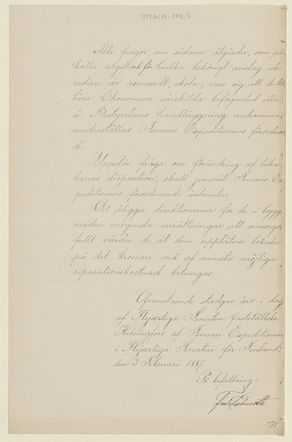 Alla frågor om sådana åtgärder, som på
kalla utgift och för hvilka behörigt anslag icke
redan är anvisadt, skola, vare sig att de till
höra Ekonomens särskilda befogenhet eller
å Bestyrelsens handläggning ankomma
underställas Finans Expeditionens förordnan
de.
Uppstår fråga om förändring af loka-
lernas disposition, skall jemväl Finans Ex-
peditionens förordnande inhemtas.
Det åligger direktionerna för de i bygg
naden inrymda inrättningar att omsorgs
fullt vårda de åt dem upplåtna lokaler
på det kronan må af minsta möjliga
reparationskostnad betungas.
Ofvanstående stadgar äro i dag
af Kejserliga Senaten fastställda.
Helsingfors af Finans Expeditionen
i Kejserliga Senaten för Finland
den 3 Februari 1887.
På befallning